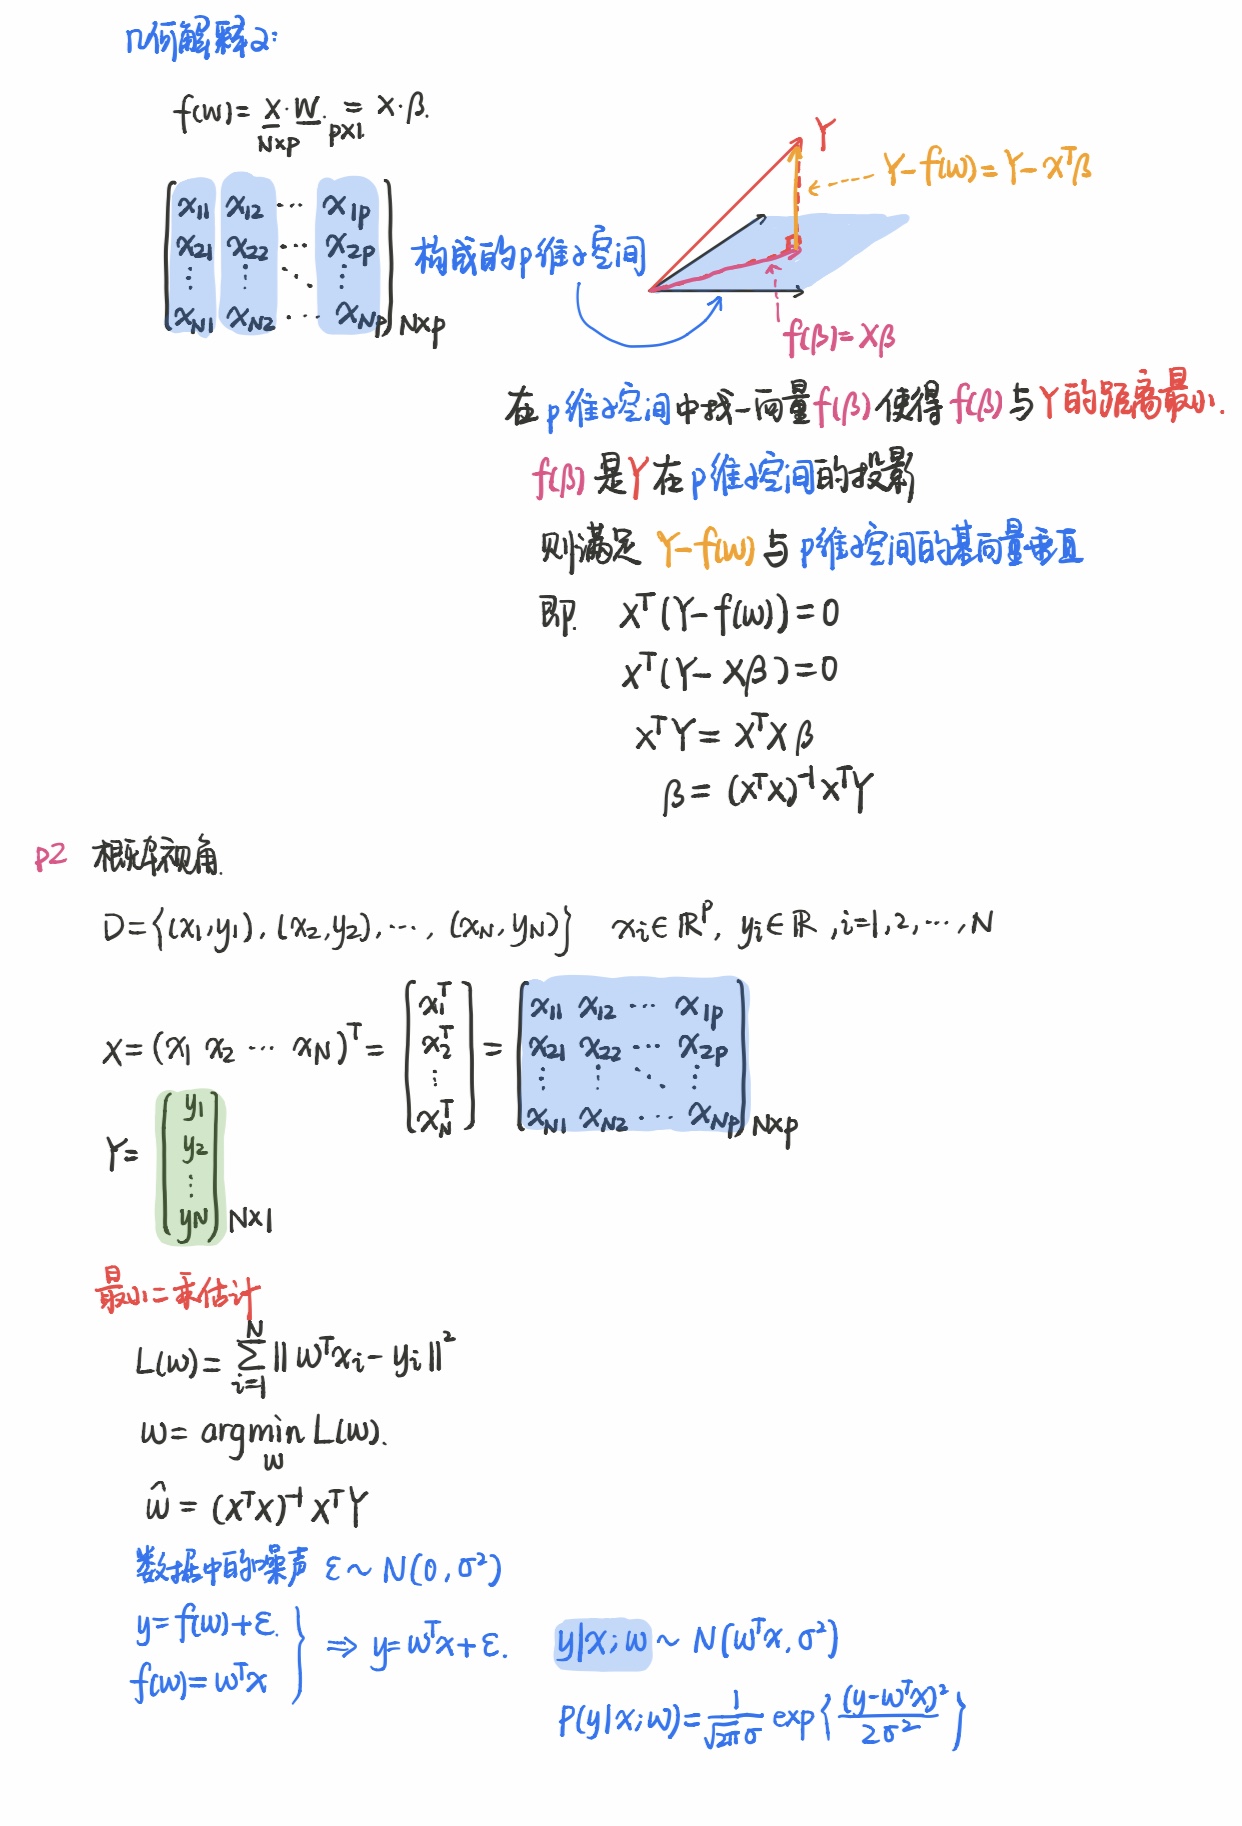 几何解释2:
f(w)= X·W = X·β.
N×p p×1
Y
Y-f(w)=Y-X^Tβ
[x11 x12 ··· x1p
x21 x22 ··· x2p
⋮ ⋮ ⋱ ⋮
xN1 xN2 ··· xNp] N×p
构成的p维子空间
f(β)=Xβ
在p维子空间中找一向量f(β)使得f(β)与Y的距离最小.
f(β)是Y在p维子空间的投影
则满足 Y-f(w)与p维子空间的基向量垂直
即. X^T(Y-f(w))=0
X^T(Y-Xβ)=0
X^TY=X^TXβ
β=(X^TX)^-1X^TY
P2 概率视角.
D={(x1,y1),(x2,y2),···,(xN,yN)} xi∈ℝ^p, yi∈ℝ,i=1,2,···,N
X=(x1 x2 ··· xN)^T=[x1^T x2^T ⋮ xN^T]=[x11 x12 ··· x1p
x21 x22 ··· x2p
⋮ ⋮ ⋱ ⋮
xN1 xN2 ··· xNp] N×p
Y=[y1
y2
⋮
yN] N×1
最小二乘估计
L(w)=∑_{i=1}^{N}||w^Txi-yi||^2
w=argmin_w L(w).
ŵ=(X^TX)^-1X^TY
数据中的噪声 ε~N(0,σ^2)
y=f(w)+ε.
f(w)=w^Tx } ⇒ y=w^Tx+ε.
y|x;w~N(w^Tx,σ^2)
P(y|x;w)=1/(√2π σ) exp{(y-w^Tx)^2/2σ^2}